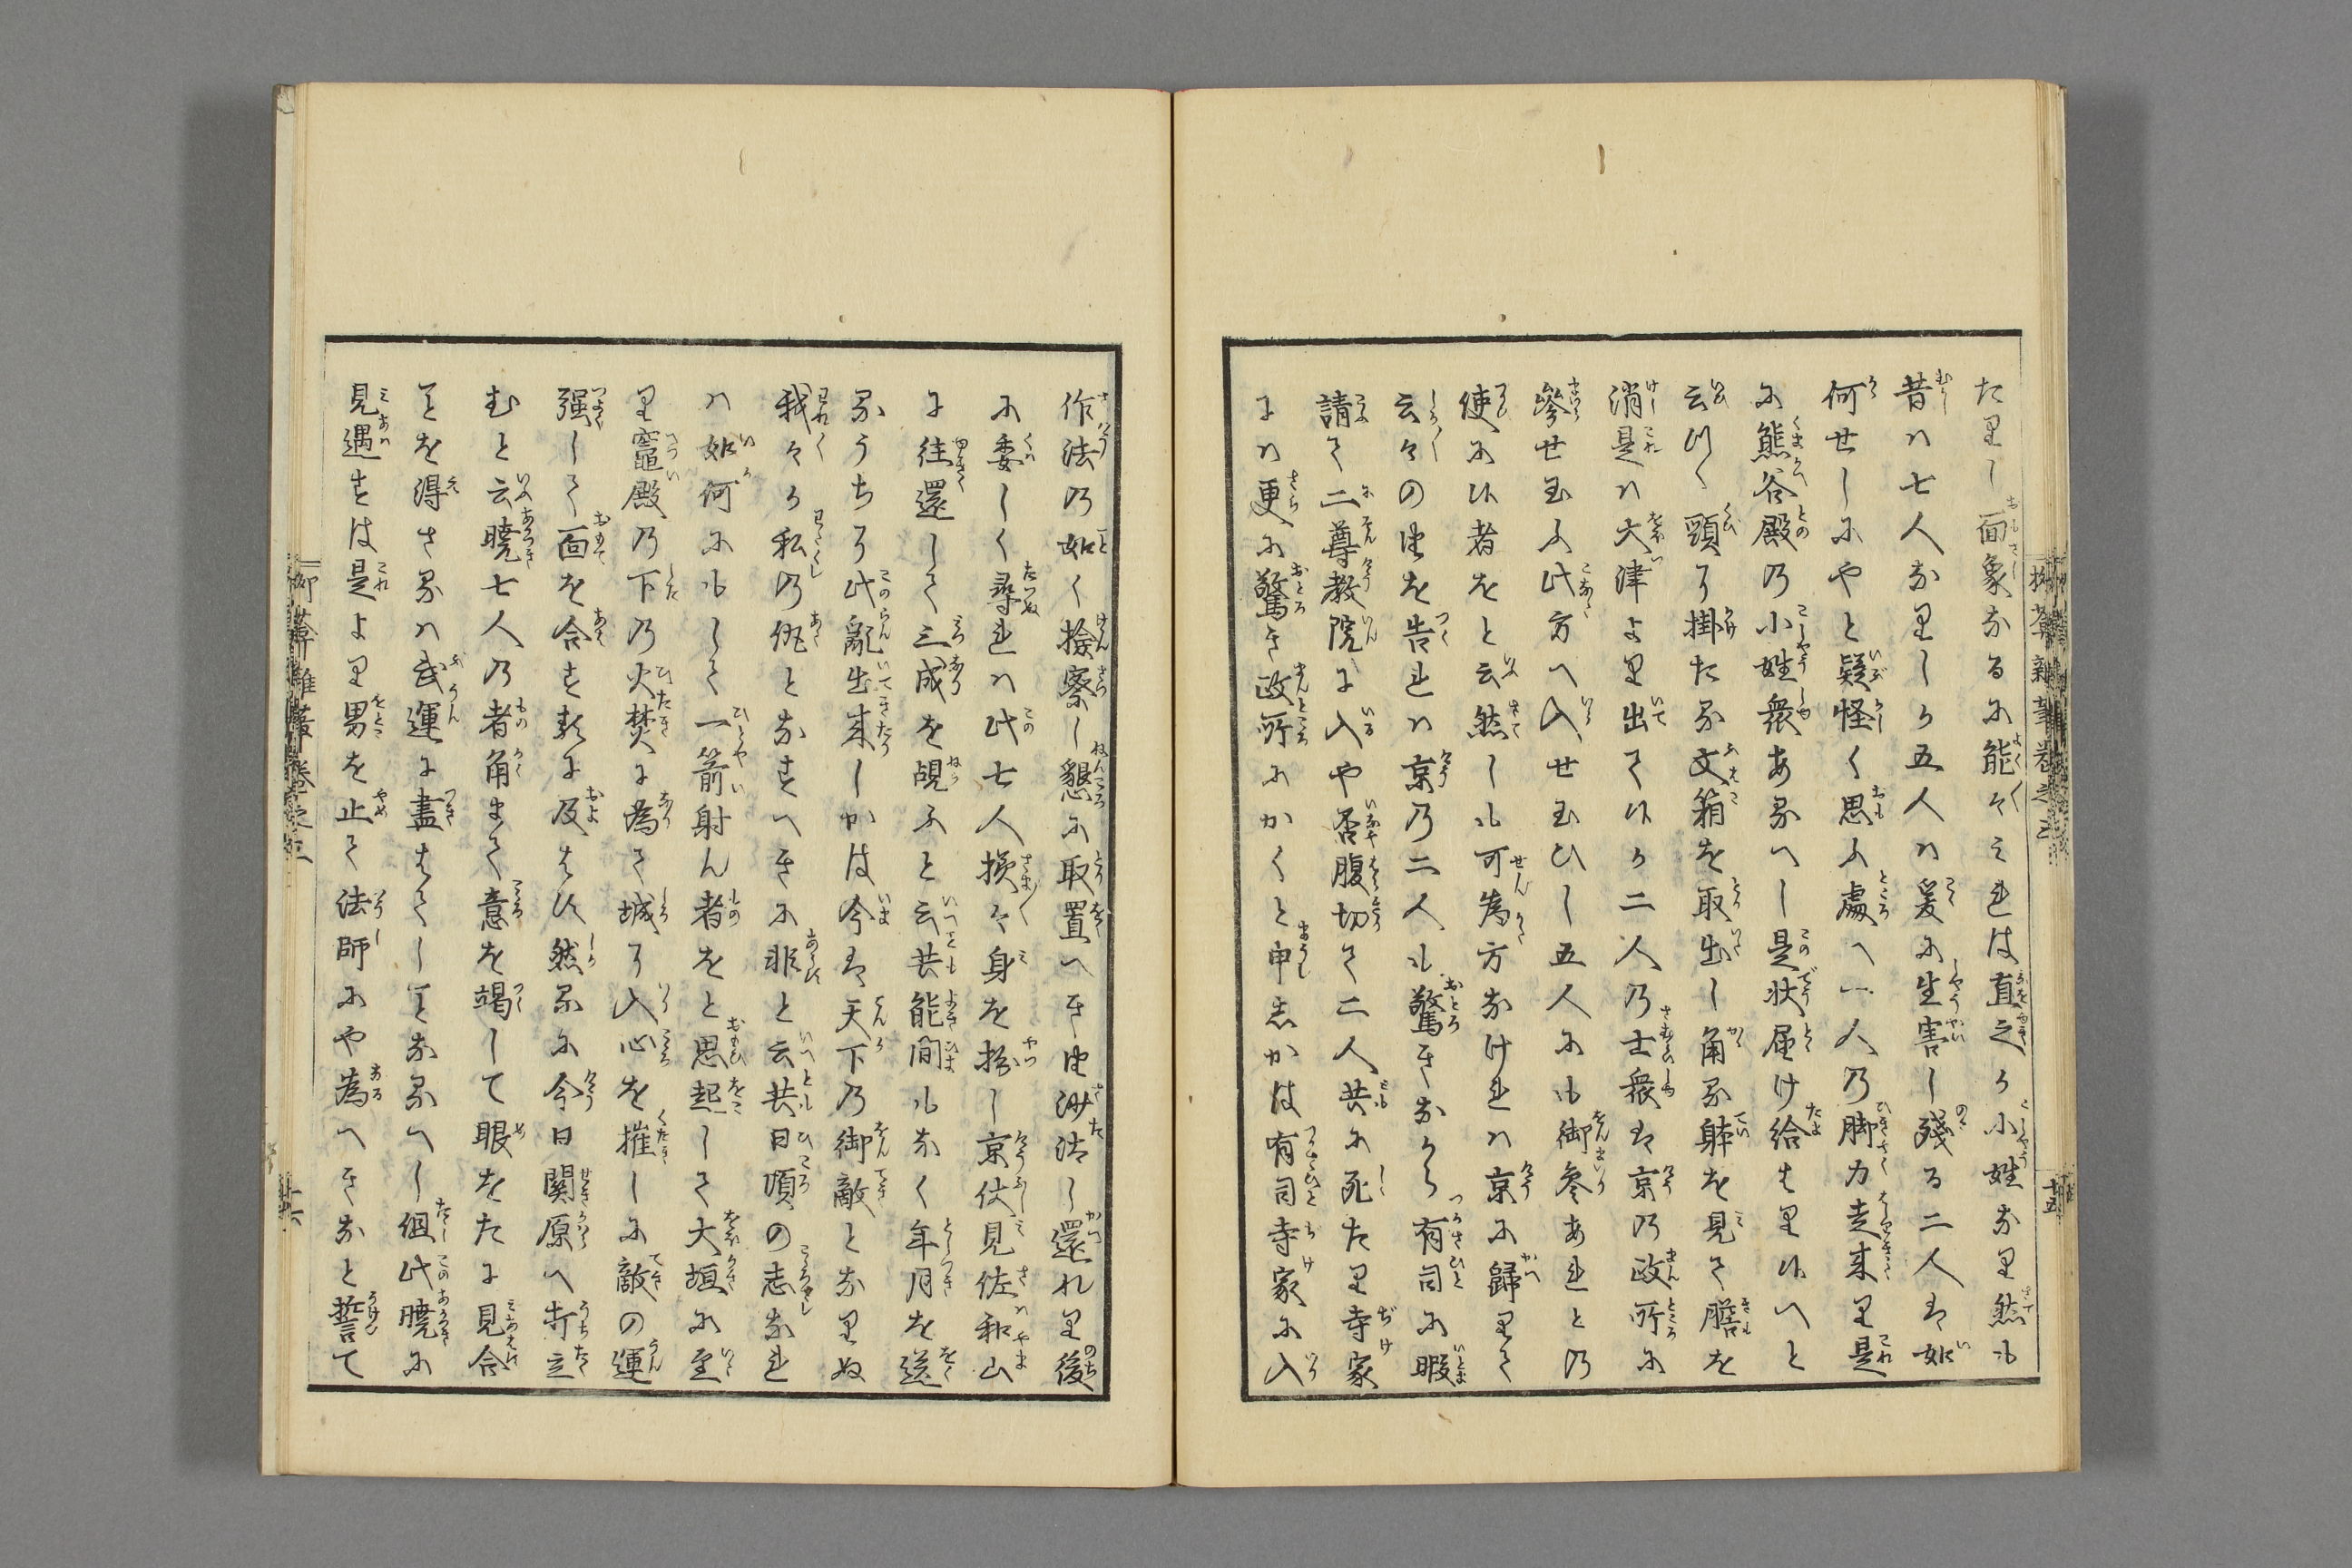 たりし面象なるに能々みれは直之か小姓なり然も
昔は七人なりしか五人は爰に生害し残る二人は如
何せしにやと疑怪く思ふ處へ一人の脚力走来り是
に熊谷殿の小姓衆あるへし是状届け給はり候へと
云つゝ頸に掛たる文箱を取出し角る躰を見て膽を
消是は大津より出て候か二人の士衆は京の政所に
参せ玉ふ此方へ入せ玉ひし五人にも御参あれとの
使に候者をと云然しも可為方なけれは京に歸りて
云々の由を告れは京の二人も驚きなから有司に暇
請て二尊教院に入や否腹切て二人共に死たり寺家
には更に驚き政所にかくと申しかは有司寺家に入
作法の如く撿察し懇に取置へき由沙汰し還れり後
に委しく尋れは此七人撲々身を扮し京伏見佐和山
に往還して三成を覘ふと云共能間もなく年月を送
るうちに此亂出来しかは今は天下の御敵となりぬ
我々か私の仇となすへきに非と云共日頃の志なれ
は如何にもして一箭射ん者をと思起して大垣に至
り竈殿の下の火焚に為て城に入心を摧しに敵の運
强して面を合す数に及はす然るに今日關原へ打立
むと云曉七人の者角まて意を竭して眼をたに見合
ことを得さるは武運に盡はてしことなるへし但此曉に
見遇すは是より男を止て法師にや為へきなと誓て